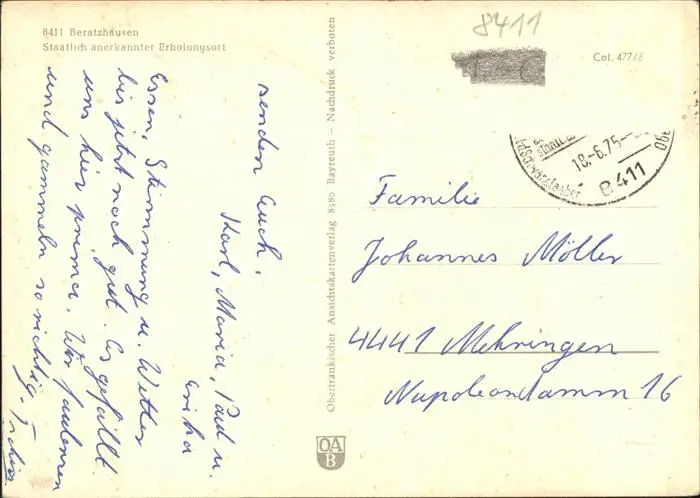 8411 Beratzhausen
Staatlich anerkannter Erholungsort
8411
Col. 477/8
18.-6.75-
8411
senden Euch,
Karl, Maria, Paul u.
Erika
Essen, Stimmung u. Wetter
bis jetzt noch gut. Es gefällt
uns hier prima. Wir faulenzen
und gammeln so richtig.
Oberfränkischer Ansichtskartenverlag 8580 Bayreuth – Nachdruck verboten
Familie
Johannes Möller
4441 Mehringen
Napoleondamm 16
OA
B